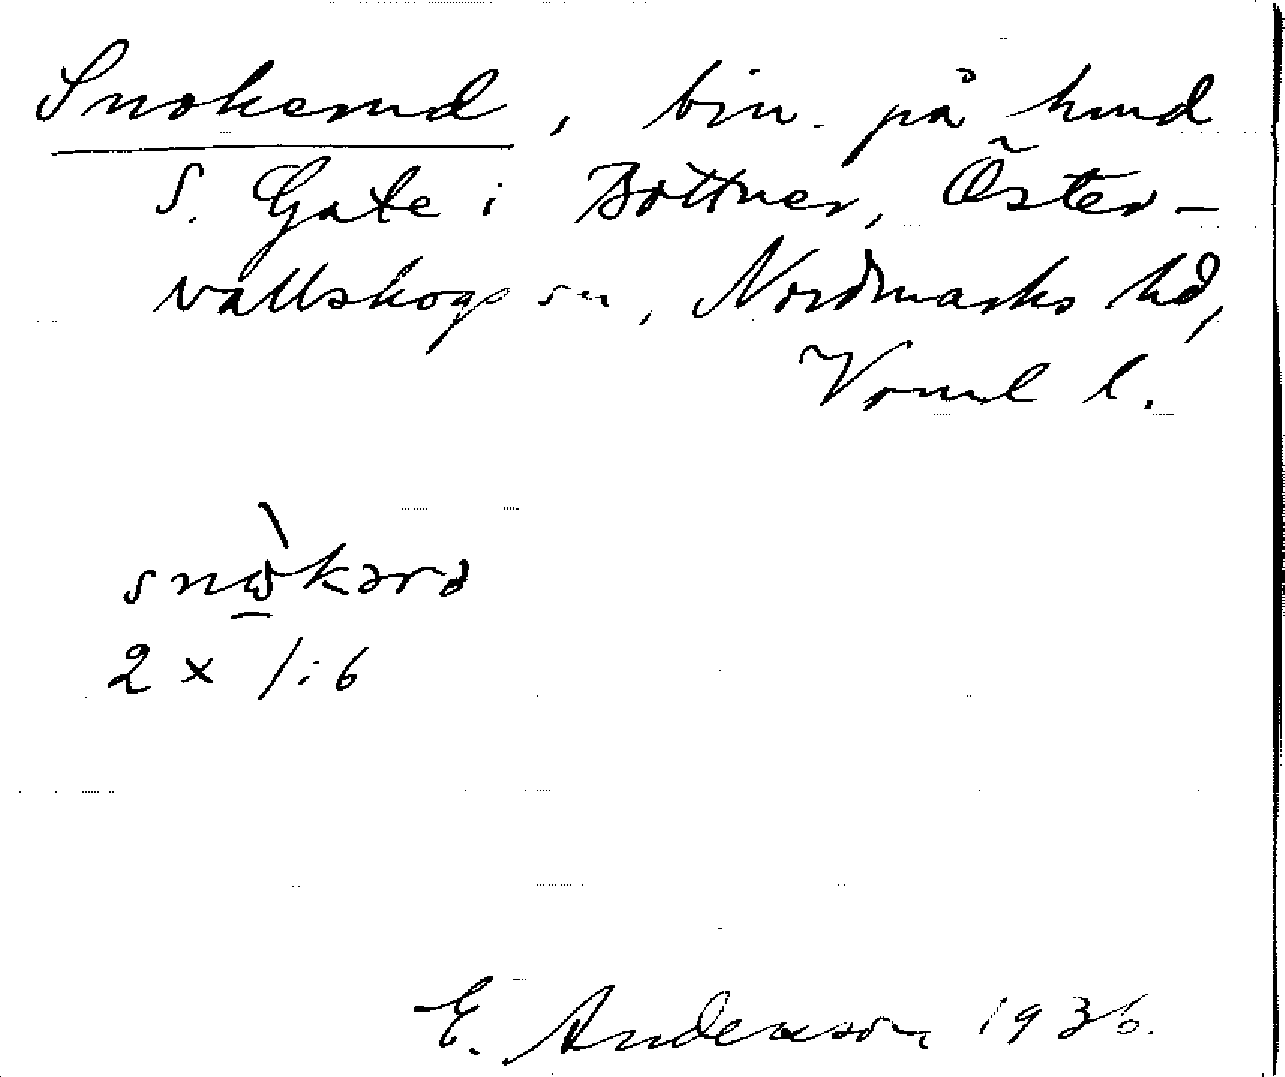 Snokerud, bin. på hmd
S. Gate i Bottner, Öster-
vallskogs sn, Nordmarks hd,
Vrml l.
snωkərd
2 x /:6
E. Anderson 1936.